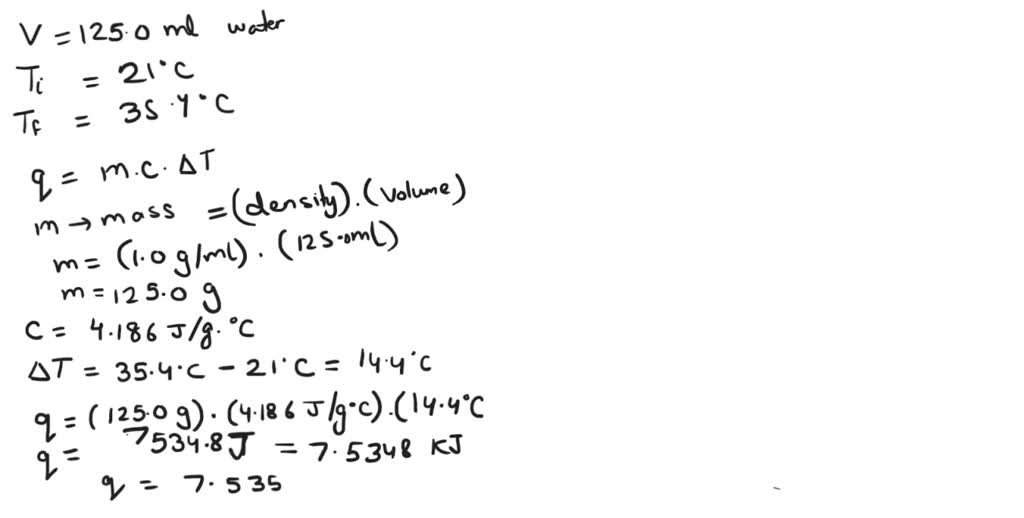 V = 125.0 ml water
Ti = 21°C
Tf = 35.4°C
q = m.c.ΔT
m → mass = (density).(volume)
m = (1.0 g/ml).(125.0ml)
m = 125.0 g
C = 4.186 J/g.°C
ΔT = 35.4°C - 21°C = 14.4°C
q = (125.0 g).(4.186 J/g°C).(14.4°C
q = 7534.8J = 7.5348 KJ
q = 7.535